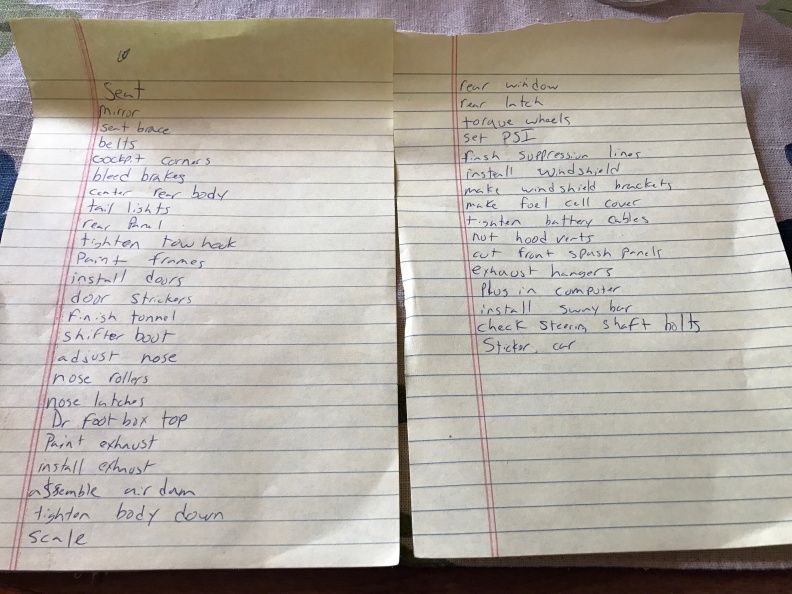 Seat
mirror
seat brace
belts
cockpit corners
bleed brakes
center rear body
tail lights
rear Panel
tighten tow hook
Paint frames
install doors
door strickers
finish tunnel
shifter boot
adjust nose
nose rollers
nose latches
Dr foot box top
Paint exhaust
install exhaust
assemble air dam
tighten body down
scale
rear window
rear latch
torque wheels
set PSI
finsh suppression lines
install windshield
make windshield brackets
make fuel cell cover
tighten battery cables
nut hood vents
cut front spash panels
exhaust hangers
Plug in computer
install sway bar
check steering shaft bolts
Sticker car